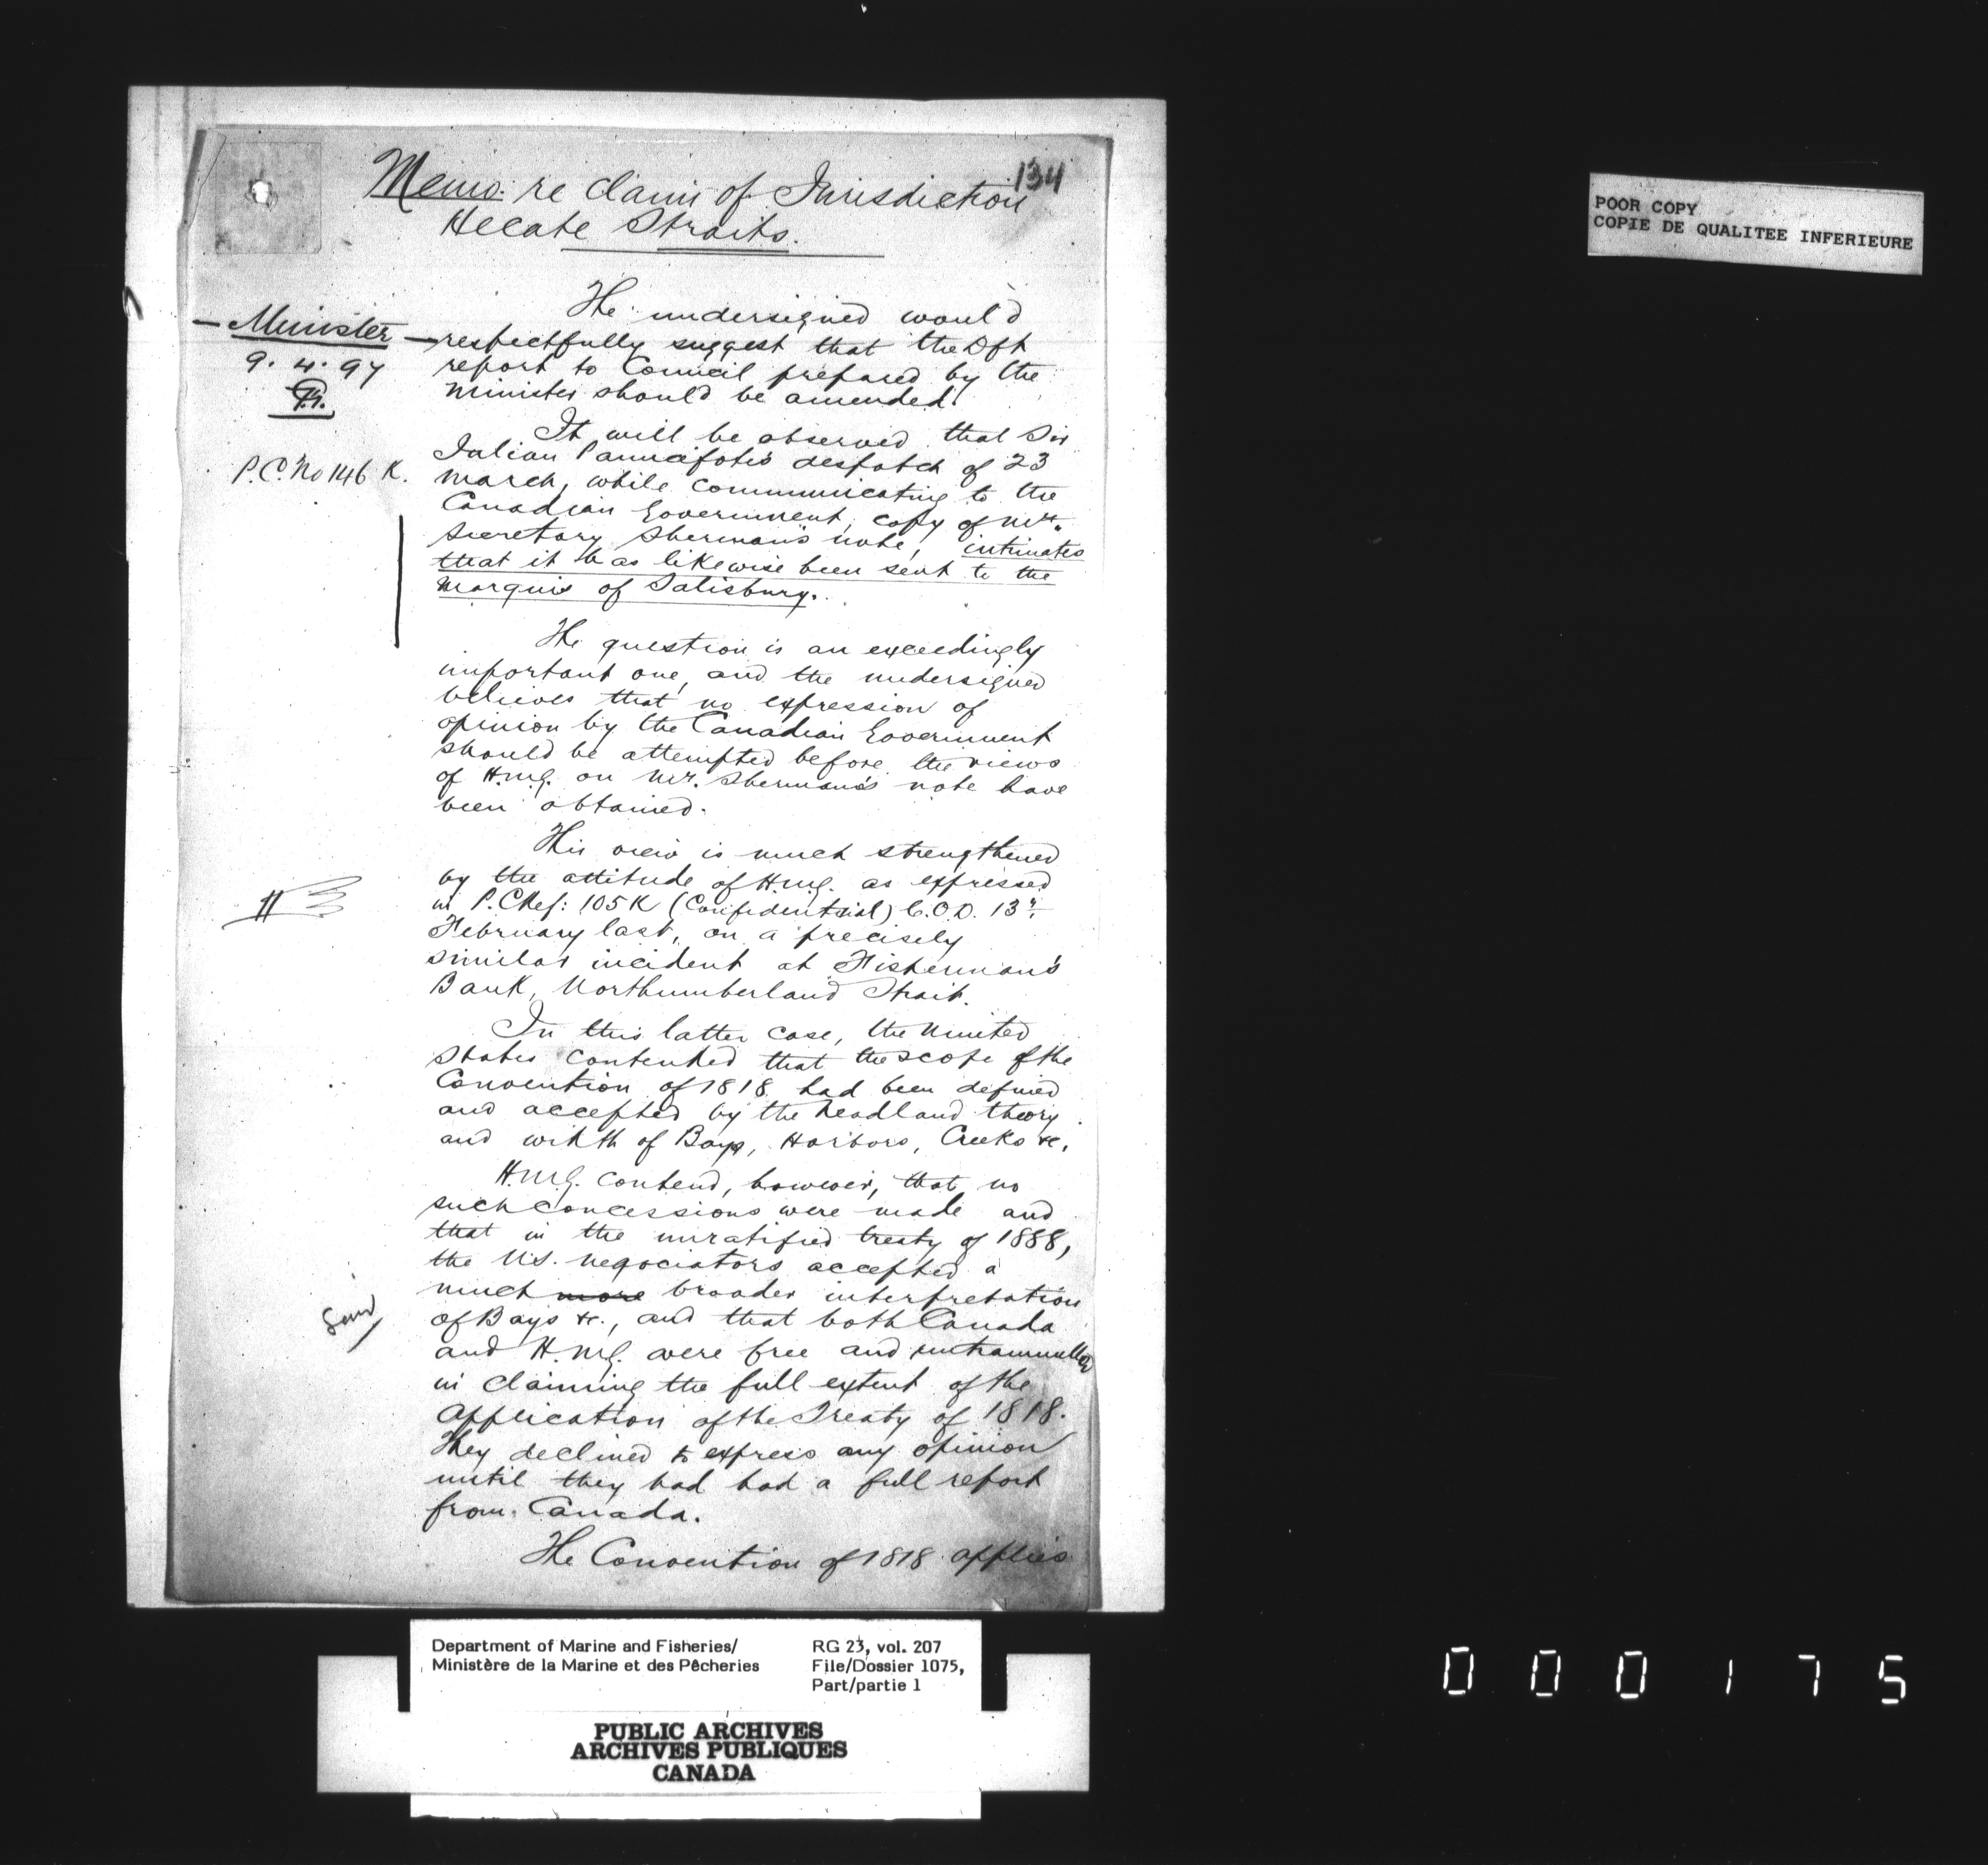 134
Memo. re claim of Jurisdiction
Hecate Straits.
The undersigned would
— Minister — respectfully suggest that the Dft
9. 4. 97
report to Council prepared by the
Minister should be amended.
It will be observed that Sir
Julian Pauncefote's despatch of 23
P.C. No 146 K.
March, while communicating to the
Canadian Government, copy of Mr.
Secretary Sherman's note, intimates
that it has likewise been sent to the
Marquis of Salisbury.
The question is an exceedingly
important one, and the undersigned
believes that no expression of
opinion by the Canadian Government
should be attempted before the views
of H.M.G. on Mr. Sherman's note have
been obtained.
This view is much strengthened
by the attitude of H.M.G. as expressed
in P.C. Ref: 105 K (Confidential) C.O.D. 13th
February last, on a precisely
similar incident at Fisherman's
Bank, Northumberland Strait.
In this latter case, the United
States contended that the scope of the
Convention of 1818 had been defined
and accepted by the headland theory
and width of Bays, Harbors, Creeks &c.
H.M.G. contend, however, that no
such concessions were made and
that in the unratified treaty of 1888,
the U.S. negociators accepted a
much more broader interpretation
of Bays &c., and that both Canada
and H.M.G. were free and untrammelled
in claiming the full extent of the
application of the Treaty of 1818.
They declined to express any opinion
until they had had a full report
from Canada.
The Convention of 1818 applies
POOR COPY
COPIE DE QUALITEE INFERIEURE
Department of Marine and Fisheries/
Ministère de la Marine et des Pêcheries
RG 23, vol. 207
File/Dossier 1075,
Part/partie 1
PUBLIC ARCHIVES
ARCHIVES PUBLIQUES
CANADA
000175